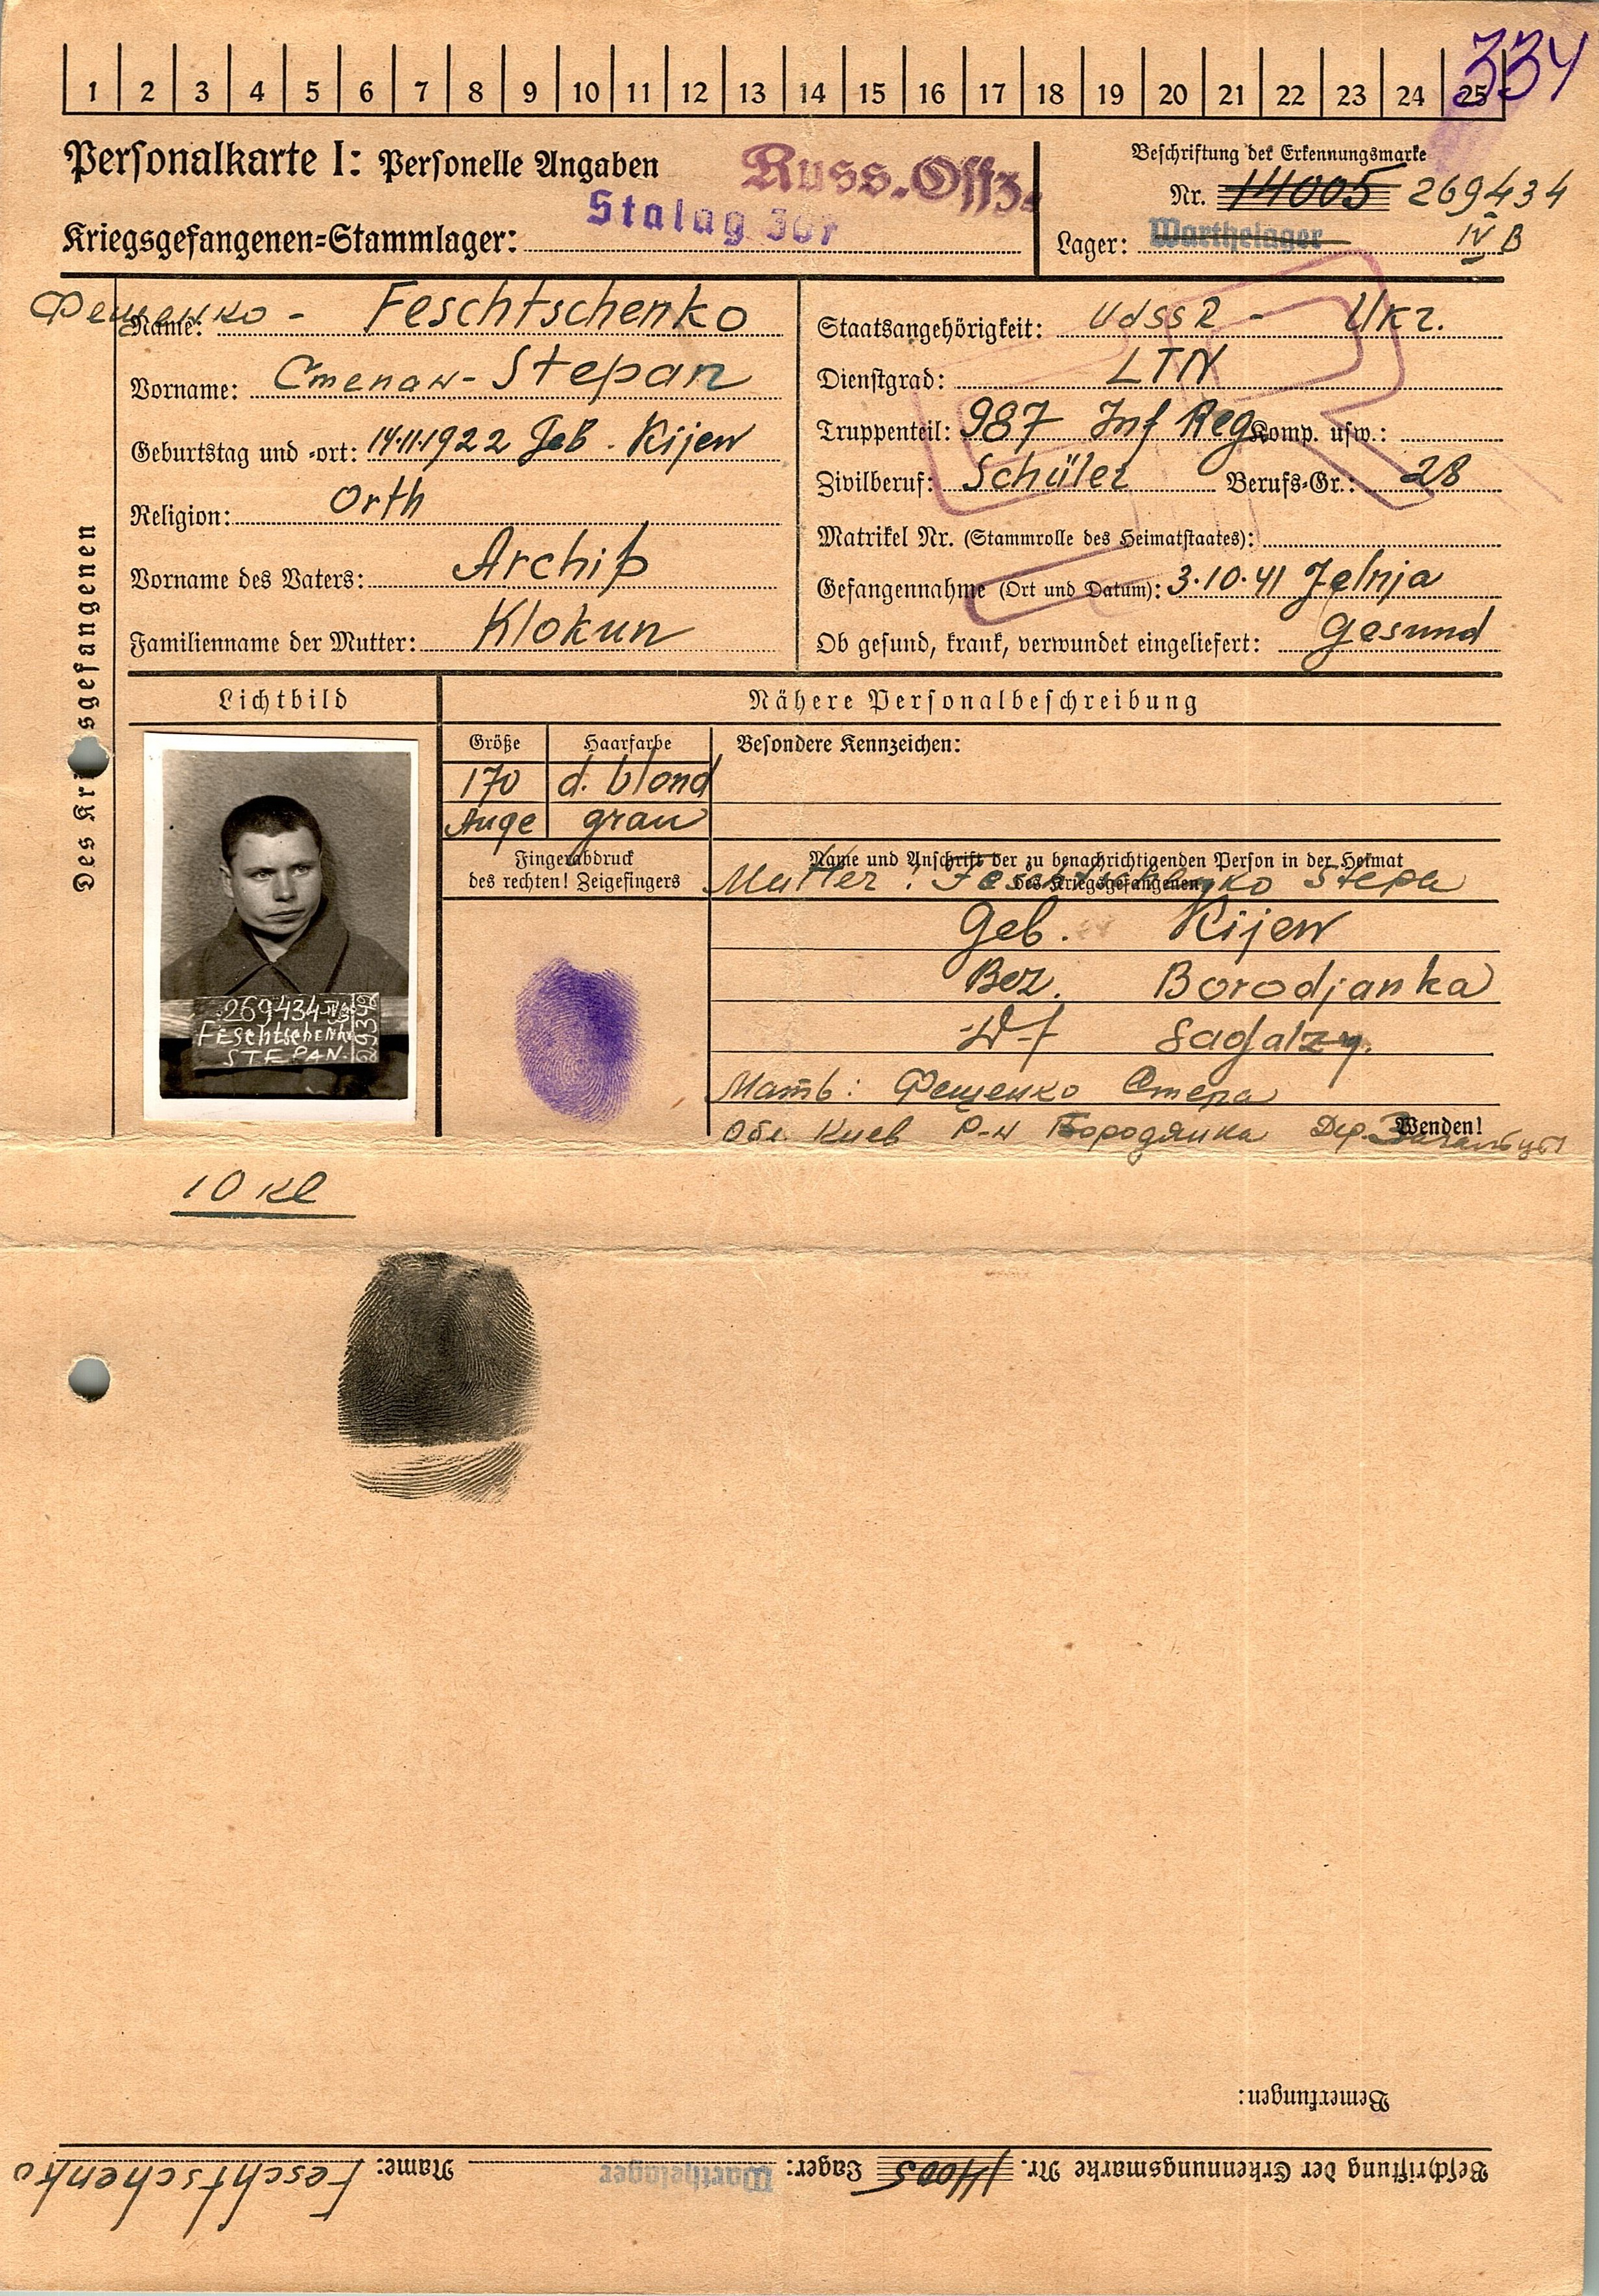 334
1 2 3 4 5 6 7 8 9 10 11 12 13 14 15 16 17 18 19 20 21 22 23 24 25
Personalkarte I: Personelle Angaben
Russ.-Offz.
Beschriftung der Erkennungsmarke
Nr. 14005 269434
Kriegsgefangenen=Stammlager: Stalag
Lager: Warthelager IV B
Des Kr sgefangenen
Фещенко -
Name: Feschtschenko
Vorname: Степан - Stepan
Geburtstag und =ort: 14.11.1922 Geb. Kijew
Religion: Orth
Vorname des Vaters: Archip
Familienname der Mutter: Klokun
Staatsangehörigkeit: UdSSR - Ukr.
Dienstgrad: LTN
Truppenteil: 987 Inf Reg Komp. usw.:
Zivilberuf: Schüler Berufs=Gr.: 28
Matrikel Nr. (Stammrolle des Heimatstaates):
Gefangennahme (Ort und Datum): 3.10.41 Jelnja
Ob gesund, krank, verwundet eingeliefert: Gesund
Lichtbild
Nähere Personalbeschreibung
Größe Haarfarbe Besondere Kennzeichen:
170 d. blond
Auge grau
Fingerabdruck
des rechten! Zeigefingers
Name und Anschrift der zu benachrichtigenden Person in der Heimat
des Kriegsgefangenen
Mutter: Feschtschenko Stepa
Geb. Kijew
Bez. Borodjanka
Df Sagalzy.
Мать: Фещенко Степа
Обл. Киев Р-н Бородянка Дер. Загальцы
Wenden!
269434 IVB
Feschtschenko
STEPAN.
10 кл
Bemerkungen:
Beschriftung der Erkennungsmarke Nr. 14005 Lager: Warthelager Name: Feschtschenko